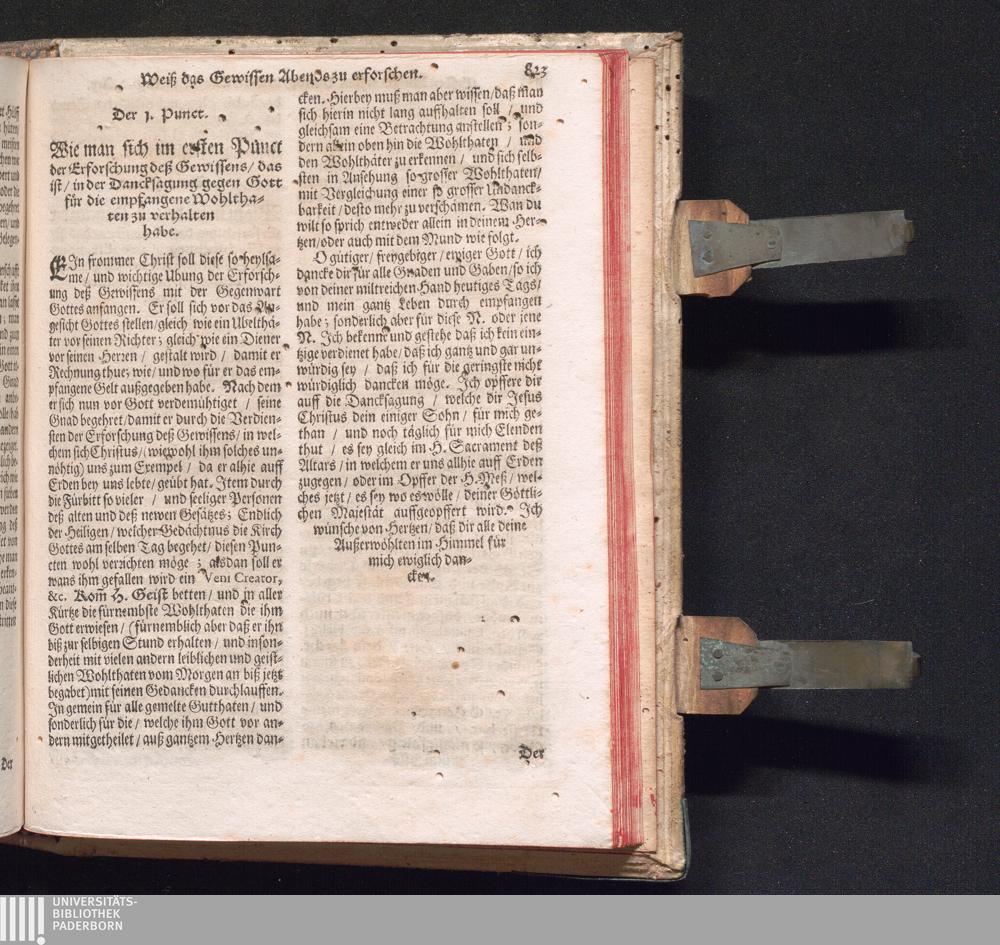 Weiß das Gewissen Abends zu erforschen.
823
Der 1. Punct.
Wie man sich im ersten Punct
der Erforschung deß Gewissens / das
ist / in der Dancksagung gegen Gott
für die empfangene Wohltha-
ten zu verhalten
habe.
EIn frommer Christ soll diese so heylsa-
me / und wichtige Ubung der Erforsch-
ung deß Gewissens mit der Gegenwart
Gottes anfangen. Er soll sich vor das An-
gesicht Gottes stellen / gleich wie ein Ubelthä-
ter vor seinen Richter; gleich wie ein Diener
vor seinen Herzen / gestalt wird / damit er
Rechnung thue; wie / und wo für er das em-
pfangene Gelt außgegeben habe. Nach dem
er sich nun vor Gott verdemühtiget / seine
Gnad begehret / damit er durch die Verdien-
sten der Erforschung deß Gewissens / in wel-
chem sich Christus / (wiewohl ihm solches un-
nöhtig) uns zum Exempel / da er alhie auff
Erden bey uns lebte / geübt hat. Item durch
die Fürbitt so vieler / und seeliger Personen
deß alten und deß newen Gesätzes; Endlich
der Heiligen / welcher Gedächtnus die Kirch
Gottes am selben Tag begehet / diesen Pun-
cten wohl verzichten möge; alsdan soll er
wans ihm gefallen wird ein Veni Creator,
&c. Kom̄ H. Geist betten / und in aller
Kürtze die fürnembste Wohlthaten die ihm
Gott erwiesen / (fürnemblich aber daß er ihn
biß zur selbigen Stund erhalten / und inson-
derheit mit vielen andern leiblichen und geist-
lichen Wohlthaten vom Morgen an biß jetzt
begabet) mit seinen Gedancken durchlauffen.
In gemein für alle gemelte Gutthaten / und
sonderlich für die / welche ihm Gott vor an-
dern mitgetheilet / auß gantzem Hertzen dan-
cken. Hierbey muß man aber wissen / daß man
sich hierin nicht lang auffhalten soll / und
gleichsam eine Betrachtung anstellen; son-
dern allein oben hin die Wohlthaten / und
den Wohlthäter zu erkennen / und sich selb-
sten in Ansehung so grosser Wohlthaten /
mit Vergleichung einer so grosser Undanck-
barkeit / desto mehr zu verschämen. Wan du
wilt so sprich entweder allein in deinem Her-
tzen / oder auch mit dem Mund wie folgt.
O gütiger / freygebiger / ewiger Gott / ich
dancke dir für alle Gnaden und Gaben / so ich
von deiner miltreichen Hand heutiges Tags /
und mein gantz Leben durch empfangen
habe; sonderlich aber für diese N. oder jene
N. Ich bekenne und gestehe daß ich kein ein-
tzige verdienet habe / daß ich gantz und gar un-
würdig sey / daß ich für die geringste nicht
würdiglich dancken möge. Ich opffere dir
auff die Dancksagung / welche dir Jesus
Christus dein einiger Sohn / für mich ge-
than / und noch täglich für mich Elenden
thut / es sey gleich im H. Sacrament deß
Altars / in welchem er uns allhie auff Erden
zugegen / oder im Opffer der H. Meß / wel-
ches jetzt / es sey wo es wölle / deiner Göttli-
chen Majestät auffgeopffert wird. Ich
wünsche von Hertzen / daß dir alle deine
Außerwöhlten im Himmel für
mich ewiglich dan-
cken.
Der
Der
UNIVERSITÄTS-
BIBLIOTHEK
PADERBORN